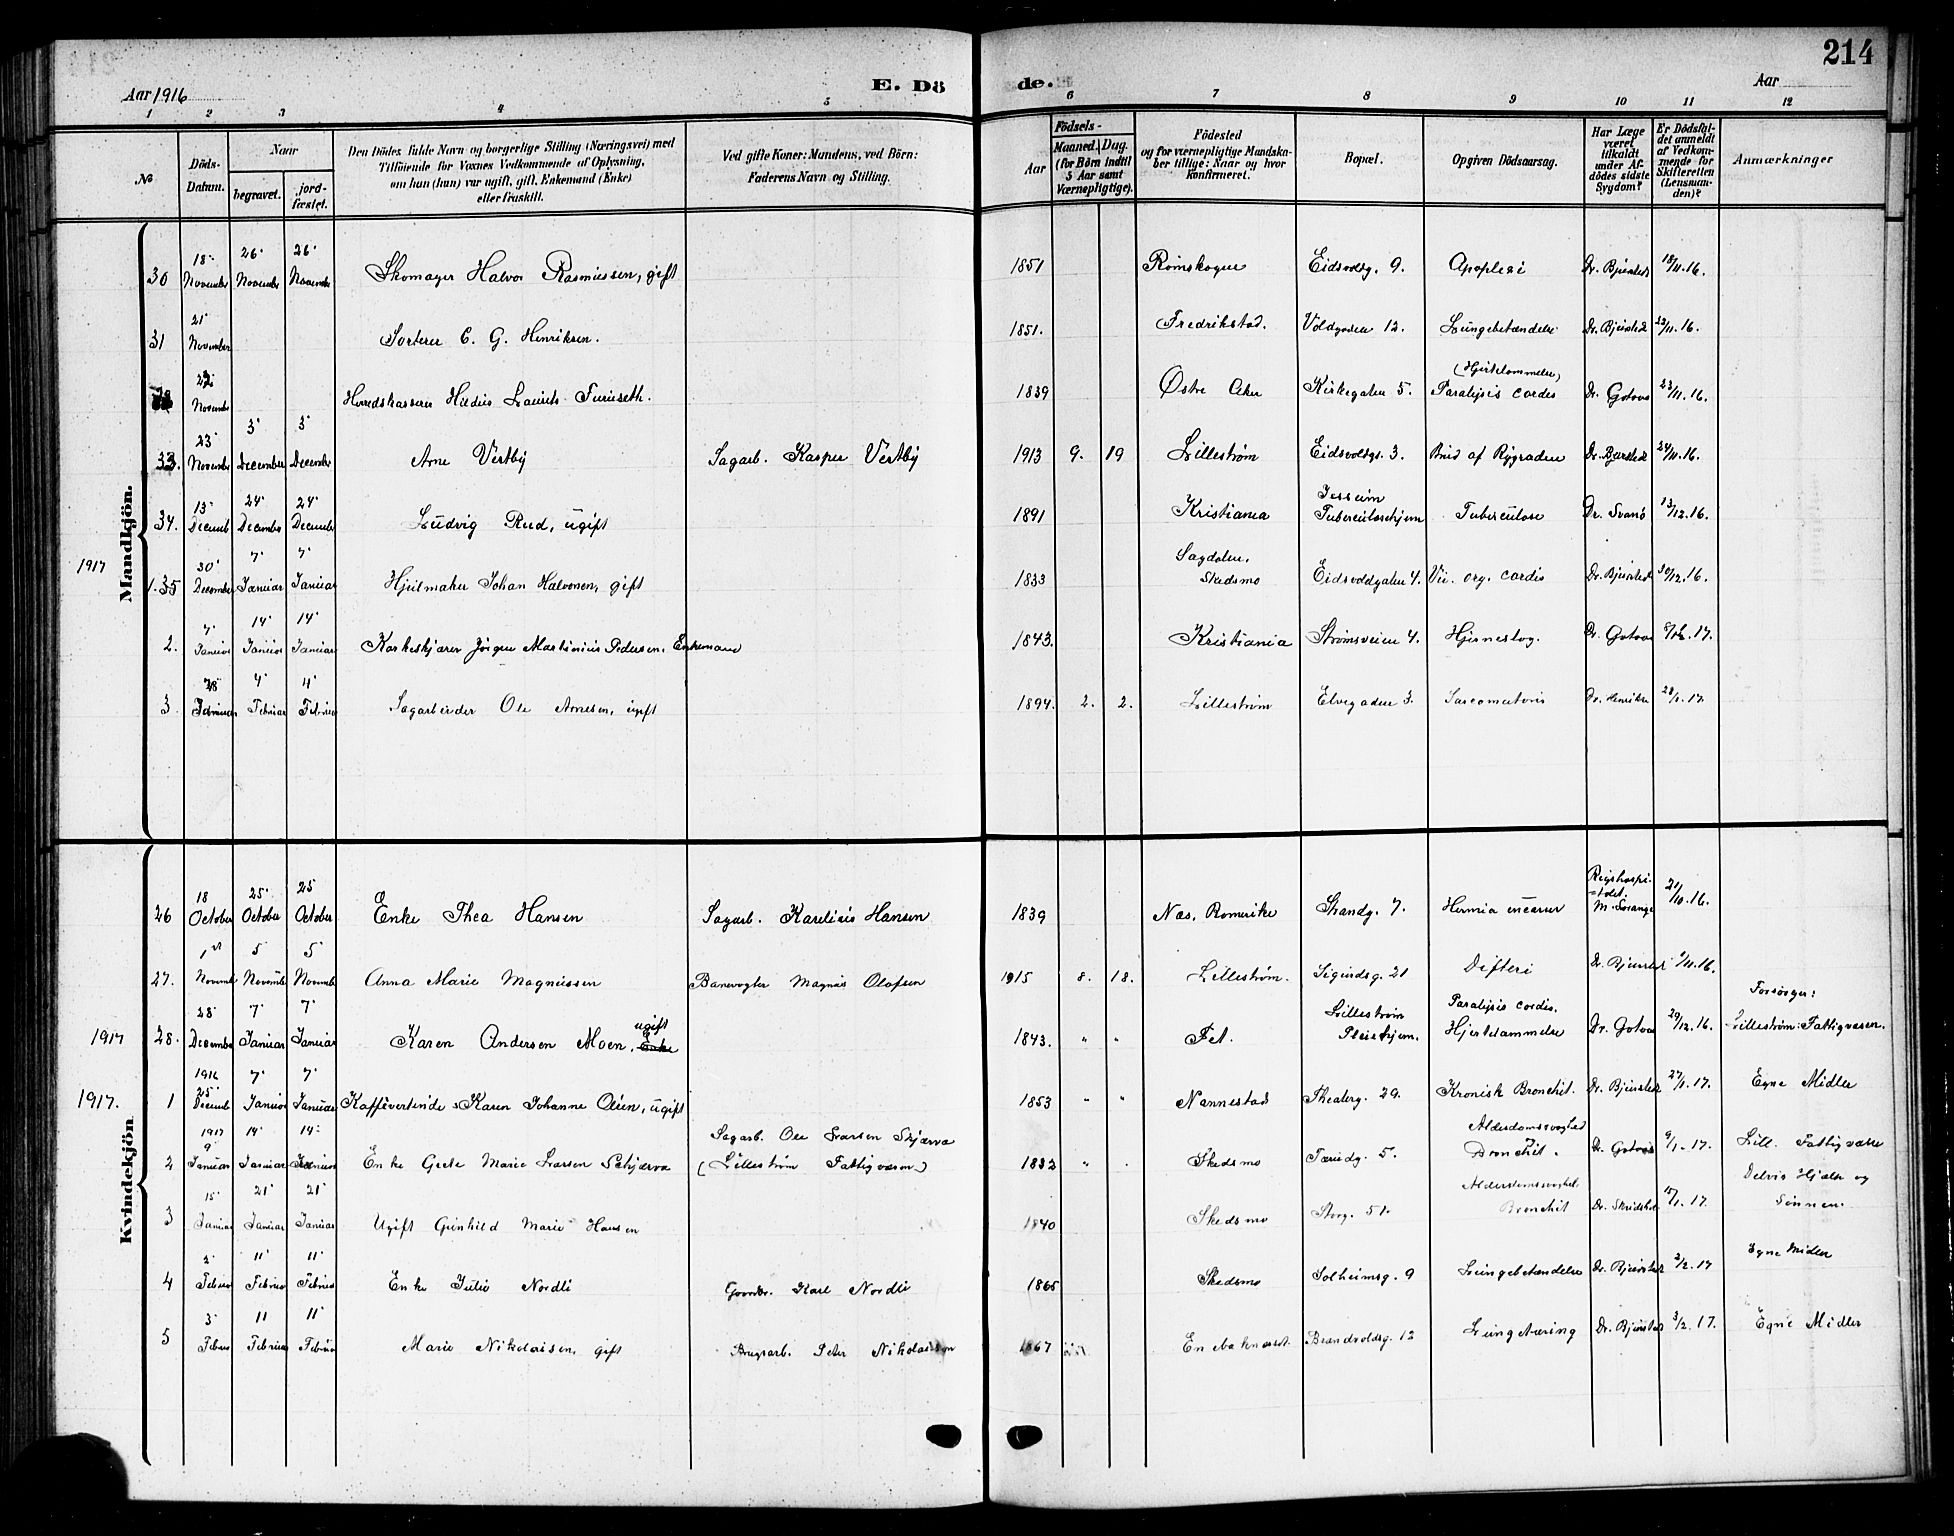 214
Aar 1916
E. Dö
de.
Aar
1 2 3 4 5 6 7 8 9 10 11 12
№
Döds-Datum.
Naar
begravet.
jord-fæstet.
Den Dödes fulde Navn og borgerlige Stilling (Næringsvei) med
Tilföiende for Voxnes Vedkommende af Oplysning,
om han (hun) var ugift, gift, Enkemand (Enke)
eller fraskilt.
Ved gifte Koner: Mandens, ved Börn:
Faderens Navn og Stilling.
Födsels-
Aar
Maaned. Dag.
(for Börn indtil 5 Aar samt Værnepligtige).
Födested
og for værnepligtige Mandskaber tillige: Naar og hvor konfirmeret.
Bopæl.
Opgiven Dödsaarsag.
Har Læge været tilkaldt under Afdödes sidste Sygdom?
Er Dödsfaldet anmeldt af Vedkommende for Skifteretten (Lensmanden)?
Anmærkninger
Mandkjön.
30 18' November 26' November 26' November Skomager Halvor Rasmussen, gift 1851 Rømskogen Eidsvoldsg. 9. Apoplexi Dr. Bjerstedt 18/11.16.
31 21' November Sorterer C. G. Henriksen. 1851. Fredrikstad. Voldgaden 12. Lungebetændelse Dr. Bjerstedt 22/11.16.
November Herredskasserer Laurits Furuseth. 1839 Østre Aker Kirkegaten 5. (Hjertelammelse) Paralysis cordis Dr. Gotaas 23/11.16.
33. 23' November 3' December 3' December Arne Vestby Sagarb. Kasper Vestby 1913 9. 19 Lillestrøm Eidsvoldgs. 3. Brud af Rygraden Dr. Bjerstedt 24/11.16.
34. 13' Decemb 24' Decembr 24' December Ludvig Rud, ugift 1891 Kristiania Jessheim Tuberculosehjem Tuberculose Dr. Svanø 13/12.16.
1917
1.35 30' December 7' Januar 7' Januar Hjulmaker Johan Halvorsen, gift 1833 Sagdalen, Skedsmo Eidsvoldgaten 4. Vit. org. cordis Dr. Bjerstedt 30/12.16.
2. 7' Januar 14' Januar 14' Januar Korkeskjærer Jörgen Martinius Pedersen, Enkemand 1843. Kristiania Strømsveien 4. Hjerneslag. Dr. Gotaas 17.
3. Februar 4' Februar 4' Februar Sagarbeider Ole Arnesen, ugift 1894. 2. 2. Lillestrøm Elvegaden 3. Dr. Henriks 28/1.17.
Kvindekjön
26 18 October 25' October 25 October Enke Thea Hansen Sagarb. Karelius Hansen 1839 Nes, Romerike Strandg. 7. Hernia incarser Rigshospitalet 21/10.16.
27. 1st Novemb 5' Novemb 5' Novemb Anna Marie Magnussen Banevogter Magnus Olafsen 1915 8. 18. Lillestrøm. Sigurdsg. 21 Difteri Dr. Bjerstedt 1/11.16.
1917
28. 28' Decembr 7' Januar 7' Januar Karen Andersen Moen, ugift 1843. " " Fet. Lillestrøm Pleiehjem. Paralysis cordis. Hjertelammelse Dr. Gotaas 29/12.16. Forsörger: Lillestrøm Fattigvæsen.
1917.
1 1916 25' Decemb 7' Januar 7' Januar Kaffévertinde Karen Johanne Olsen, ugift 1853 " " Nannestad Theaterg. 29. Kronisk Bronchit. Dr. Bjerstedt 27/1.17. Egne Midler
2 1917 9' Januar 14' Januar 14' Januar Enke Grete Marie Larsen Schjærva Sagarb. Ole Larsen Skjærva (Lillestrøm Fattigvæsen) 1832 " . Skedsmo 5. Alderdomssvaghed Bronchit. Dr. Gotaas 9/1.17. Lill. Fattigvæsen
3 15' Januar 21' Januar 21' Januar Ugift Gunhild Marie Hansen 1840 Skedsmo Storg. 51. Alderdomssvaghed Bronchit 15/1.17. Delvis Hjælp og Sönnen.
4 2' Februar 11' Februar 11' Februar Enke Julie Nordli Karl Nordli 1865 Skedsmo Solheimsg. 9 Lungebetændelse Dr. Bjerstedt 2/2.17 Egne Midler
5 3' Februar 11 Februar 11' Februar Marie Nikolaisen, gift Brugsarb. Peter Nikolaisen 1867 Enebak Brandvoldsg. 12 Lungetæring Dr. Bjerstedt 3/2.17. Egne Midler